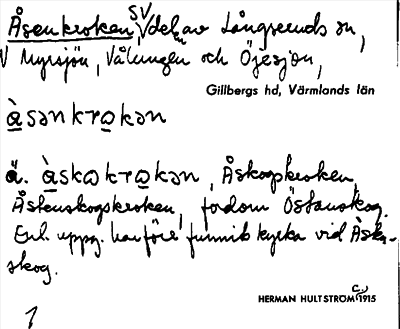 Åsenkroken, SV delen av Långserud sn,
V Myrsjön, Vålungen och Öjesjön,
Gillbergs hd, Värmlands län
àsənkrokən
ä. àskokrokən, Åskogskroken,
Åstenskogskroken, fordom Östanskog.
Enl. uppg. har förr funnits kyrka vid Åsk-
skog.
HERMAN HULTSTRÖM (?) 1915
1